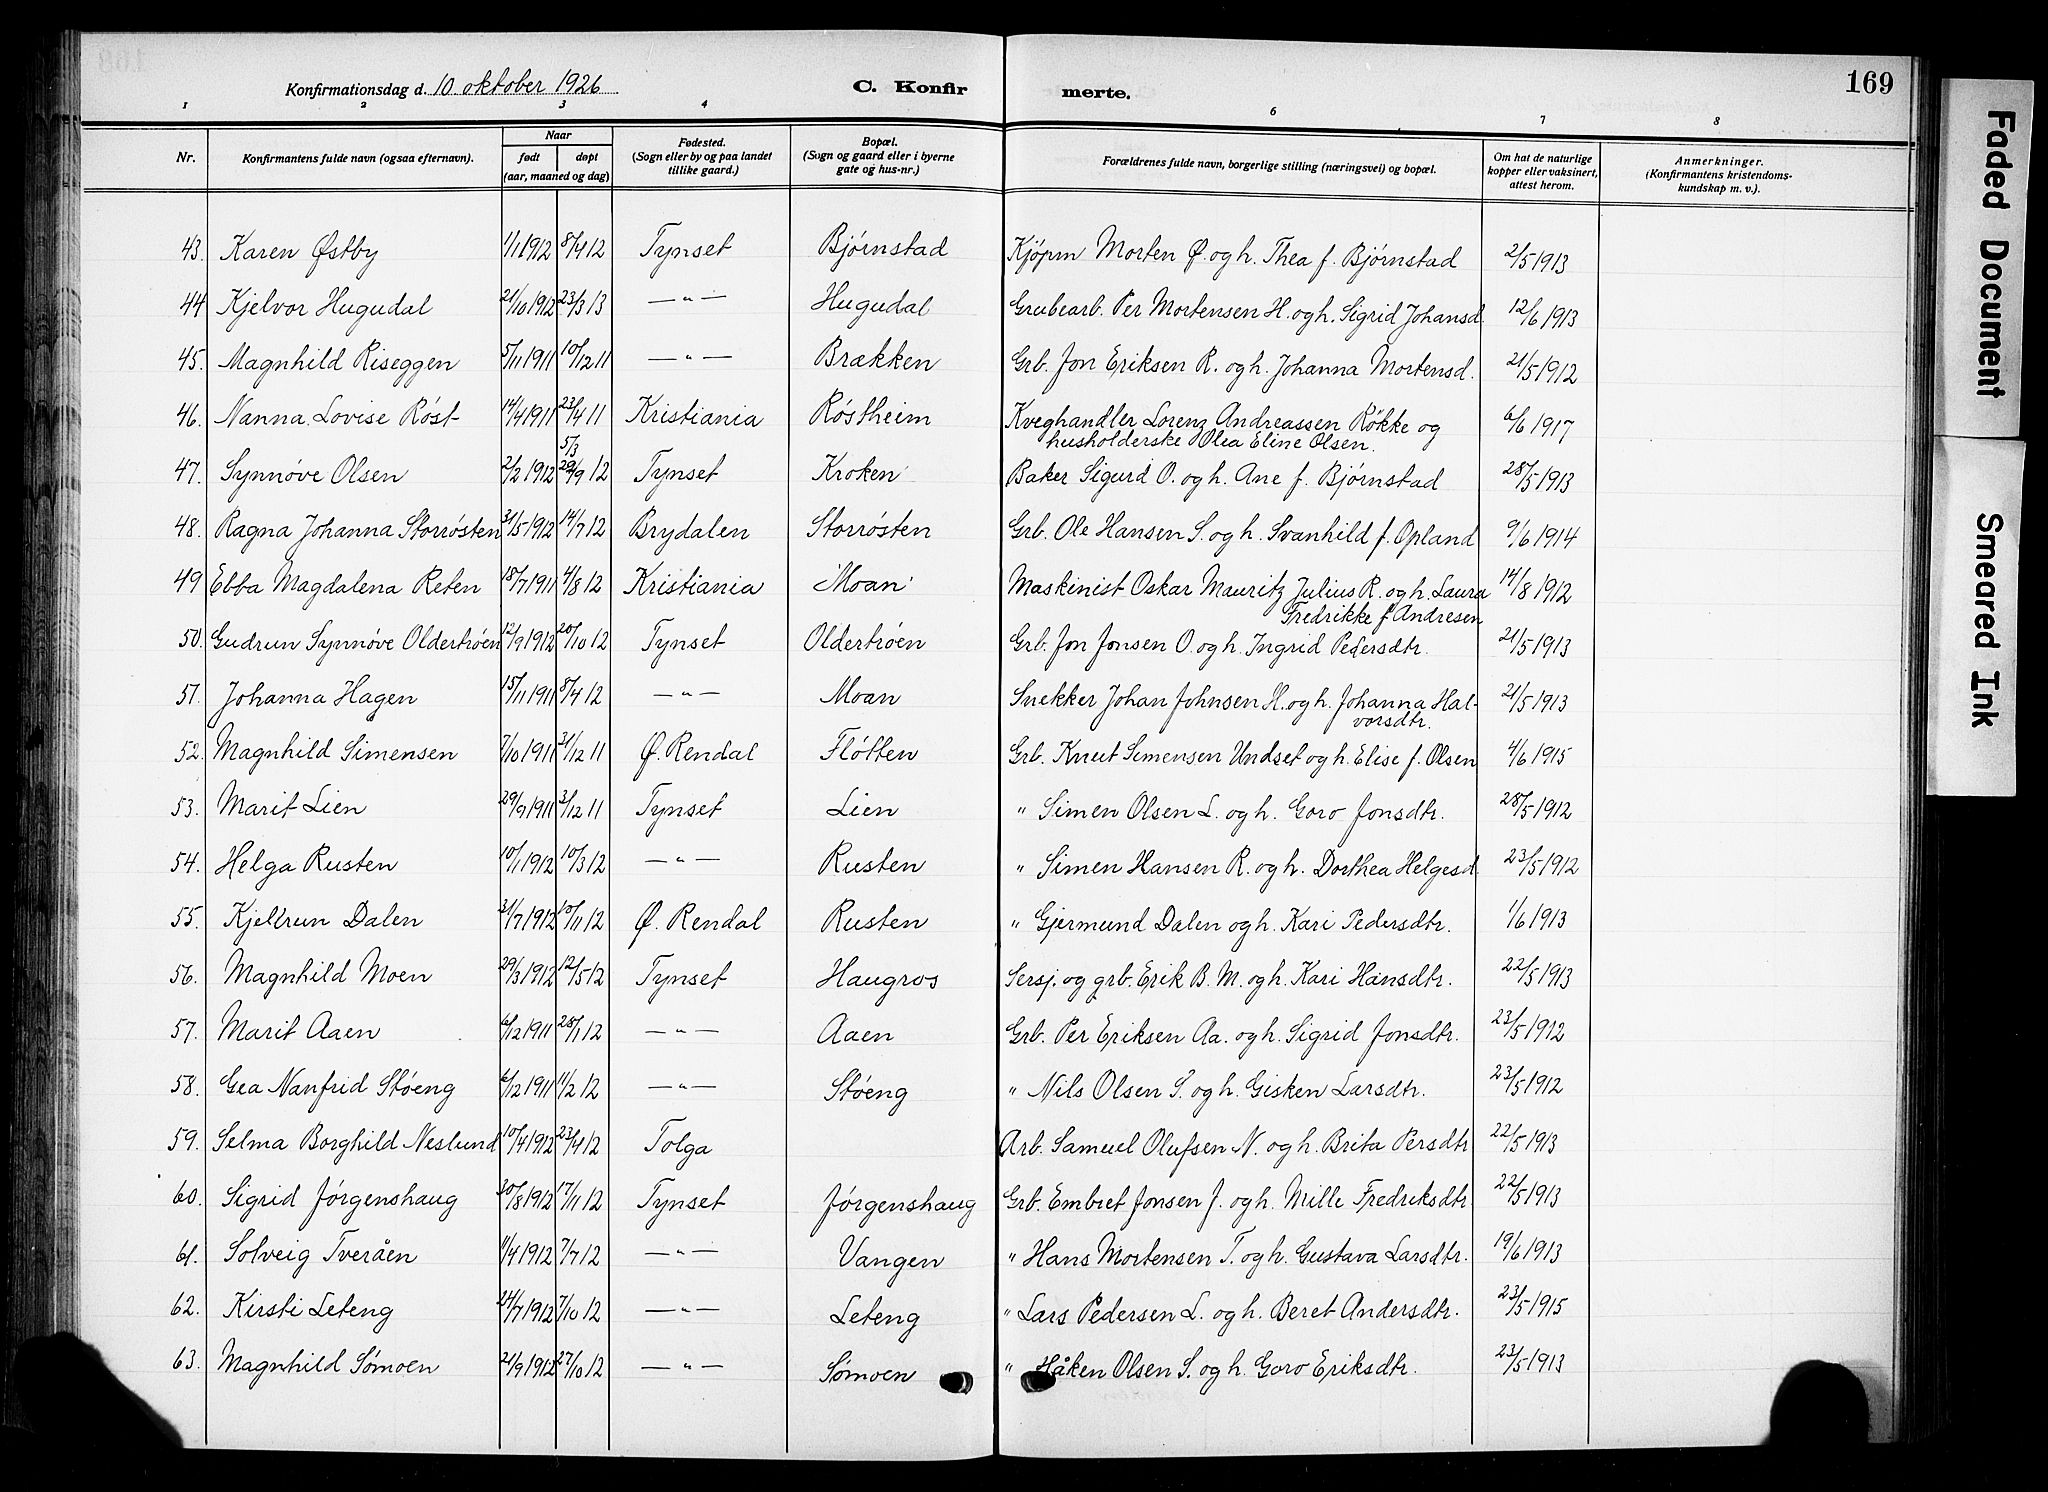 169
Konfirmationsdag d. 10. oktober 1926
C. Konfirmerte.
1 2 3 4 5 6 7 8
Nr. Konfirmantens fulde navn (ogsaa efternavn). Naar født døpt (aar, maaned og dag) Fødested. (Sogn eller by og paa landet tillike gaard.) Bopæl. (Sogn og gaard eller i byerne gate og hus-nr.) Forældrenes fulde navn, borgerlige stilling (næringsvei) og bopæl. Om hat de naturlige kopper eller vaksinert, attest herom. Anmerkninger. (Konfirmantens kristendomskundskap m. v.)
43. Karen Østby 1/1 1912 8/4 12 Tynset Bjørnstad Kjøpm Morten Ø. og h. Thea f. Bjørnstad 2/5 1913
44 Kjelvor Hugudal 21/10 1912 23/3 13 — " — Hugudal Grubearb. Per Mortensen H. og h. Sigrid Johansd. 12/6 1913
45. Magnhild Riseggen 5/11 1911 10/12 11 — " — Brækken Grb. Jon Eriksen R. og h. Johanna Mortensd. 21/5 1912
46. Nanna Lovise Røst 14/4 1911 23/4 11 Kristiania Røstheim Kveghandler Lorenz Andreassen Røkke og husholderske Olea Eline Olsen. 6/6 1917
47. Synnøve Olsen 2/2 1912 5/3 29/9 12 Tynset Kroken Baker Sigurd O. og h. Ane f. Bjørnstad 28/5 1913
48. Ragna Johanna Storrøsten 31/5 1912 14/7 12 Brydalen Storrøsten Grb. Ole Hansen S. og h. Svanhild f. Opland 9/6 1914
49 Ebba Magdalena Reten 18/7 1911 4/8 12 Kristiania Moan Maskinist Oskar Mauritz Julius R. og h. Laura Fredrikke f. Andresen 14/8 1912
50. Gudrun Synnøve Oldertrøen 12/9 1912 20/10 12 Tynset Oldertrøen Grb. Jon Jonsen O. og h. Ingrid Pedersdtr. 21/5 1913
51. Johanna Hagen 15/11 1911 8/4 12 — " — Moan Snekker Johan Johnsen H. og h. Johanna Halvorsdtr. 21/5 1913
52. Magnhild Simensen 7/10 1911 31/12 11 Ø. Rendal Fløtten Grb. Knut Simensen Undset og h. Elise f. Olsen 4/6 1915
53. Marit Lien 29/9 1911 3/12 11 Tynset Lien " Simen Olsen L. og h. Goro Jonsdtr. 28/5 1912
54. Helga Rusten 10/1 1912 10/3 12 — " — Rusten " Simen Hansen R. og h. Dorthea Helgesd. 23/5 1912
55. Kjellrun Dalen 31/7 1912 10/11 12 Ø. Rendal Rusten " Gjermund Dalen og h. Kari Pedersdtr. 1/6 1913
56. Magnhild Moen 29/3 1912 12/5 12 Tynset Haugros Sersj. og grb. Erik B. M. og h. Kari Hansdtr. 22/5 1913
57. Marit Aaen 6/12 1911 28/1 12 — " — Aaen Grb. Per Eriksen Aa. og h. Sigrid Jonsdtr. 23/5 1912
58. Gea Nanfrid Støeng 6/12 1911 11/2 12 — " — Støeng " Nils Olsen S. og h. Gisken Larsdtr. 23/5 1912
59. Selma Borghild Neslund 10/4 1912 23/4 12 Tolga Arb. Samuel Olufsen N. og h. Brita Persdtr 22/5 1913
60. Sigrid Jørgenshaug 30/8 1912 17/11 12 Tynset Jørgenshaug Grb. Embret Jonsen J. og h. Mille Fredriksdtr. 22/5 1913
61. Solveig Tveråen 11/4 1912 7/7 12 — " — Vangen " Hans Mortensen T. og h. Gustava Larsdtr. 19/6 1913
62. Kirsti Leteng 24/7 1912 7/10 12 — " — Leteng " Lars Pedersen L. og h. Beret Andersdtr. 23/5 1915
63. Magnhild Sømoen 21/9 1912 27/10 12 — " — Sømoen " Håken Olsen S. og h. Goro Eriksdtr. 23/5 1913
Faded Document
Smeared Ink